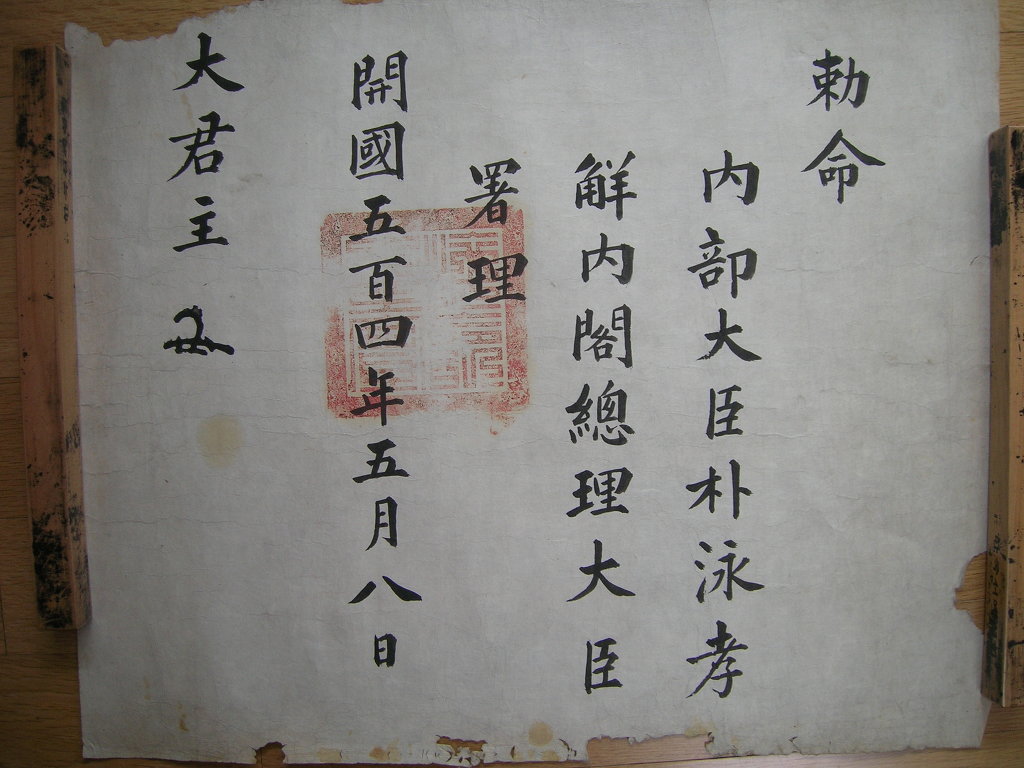 勅命
內部大臣朴泳孝
解內閣總理大臣
署理
開國五百四年五月八日
大君主